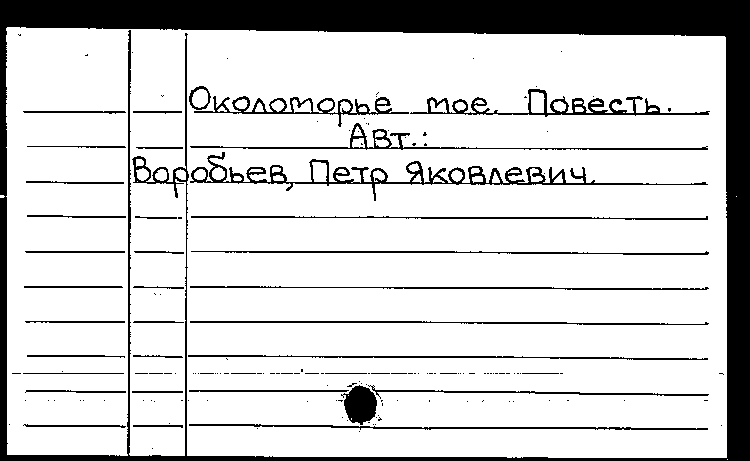 Околоморье мое. Повесть.
Авт.:
Воробьев, Петр Яковлевич.